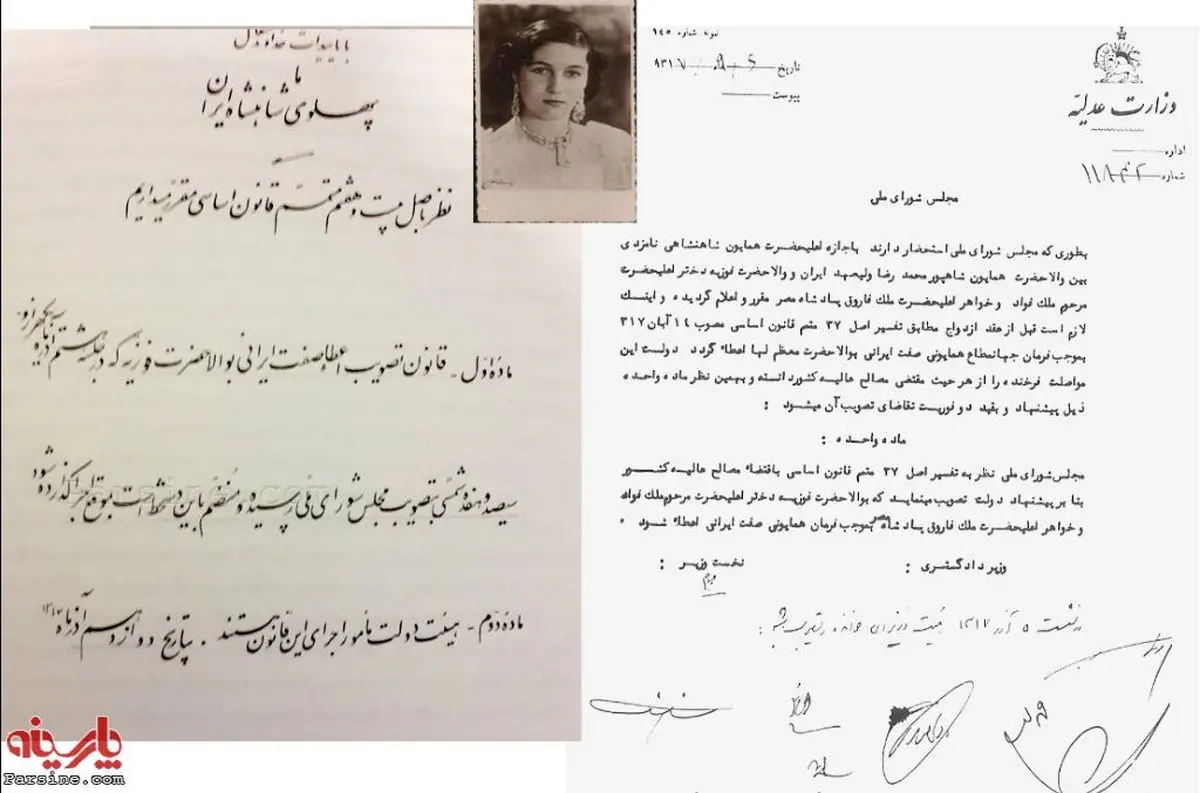 با تاییدات خداوند متعال
ما
پهلوی شاهنشاه ایران
نظر باصل بیست و هفتم متمم قانون اساسی مقرر میداریم
ماده اول - قانون تصویب اعطاء صفت ایرانی بوالاحضرت فوزیه که در جلسه هشتم آذرماه یکهزار و
سیصد و هفده شمسی بتصویب مجلس شورای ملی رسیده و منضم باین دستخط است بموقع اجرا گذارده شود
ماده دوم - هیئت دولت مأمور اجرای این قانون هستند . بتاریخ دوازدهم آذرماه ۱۳۱۷
نمونه شماره ۹۴۵
تاریخ
پیوست
وزارت عدلیه
اداره
شماره
مجلس شورای ملی
بطوری که مجلس شورای ملی استحضار دارند باجازه اعلیحضرت همایون شاهنشاهی نامزدی
بین والاحضرت همایون شاهپور محمد رضا ولیعهد ایران و والاحضرت فوزیه دختر اعلیحضرت
مرحوم ملک فواد و خواهر اعلیحضرت ملک فاروق پادشاه مصر مقرر و اعلام گردیده و اینک
لازم است قبل از عقد ازدواج مطابق تفسیر اصل ۳۷ متمم قانون اساسی مصوب ۱۴ آبان ۳۱۷
بموجب فرمان جهانمطاع همایونی صفت ایرانی بوالاحضرت معظم لها اعطاء گردد دولت این
مواصلت فرخنده را از هر حیث مقتضی مصالح عالیه کشور دانسته و بهمین نظر ماده واحده
ذیل پیشنهاد و بقید دو فوریت تقاضای تصویب آن میشود :
ماده واحده :
مجلس شورای ملی نظر به تفسیر اصل ۳۷ متمم قانون اساسی باقتضاء مصالح عالیه کشور
بنا بر پیشنهاد دولت تصویب مینماید که بوالاحضرت فوزیه دختر اعلیحضرت مرحوم ملک فواد
و خواهر اعلیحضرت ملک فاروق پادشاه مصر بموجب فرمان همایونی صفت ایرانی اعطاء شود .
وزیر دادگستری : نخست وزیر :
در نشست ۵ آذر ۱۳۱۷ هیئت وزیران خوانده و تصویب شد :
پارسینه
Parsine.com